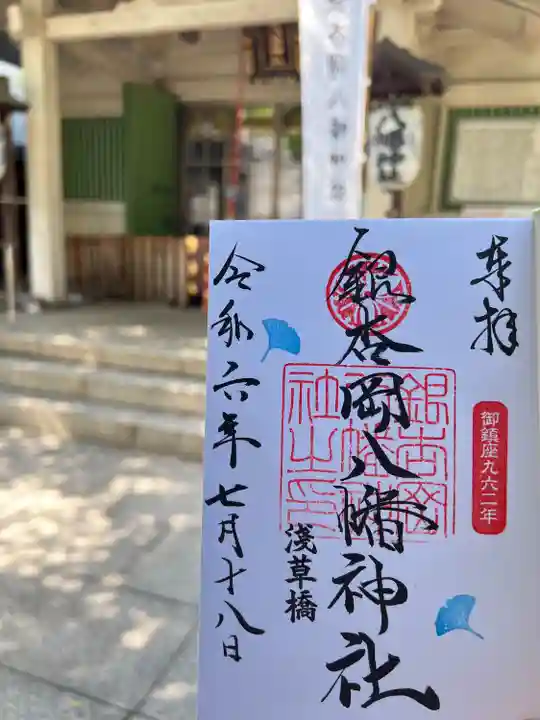 奉拝
御鎮座九六二年
銀杏岡八幡神社
淺草橋
令和六年七月十八日
八幡社